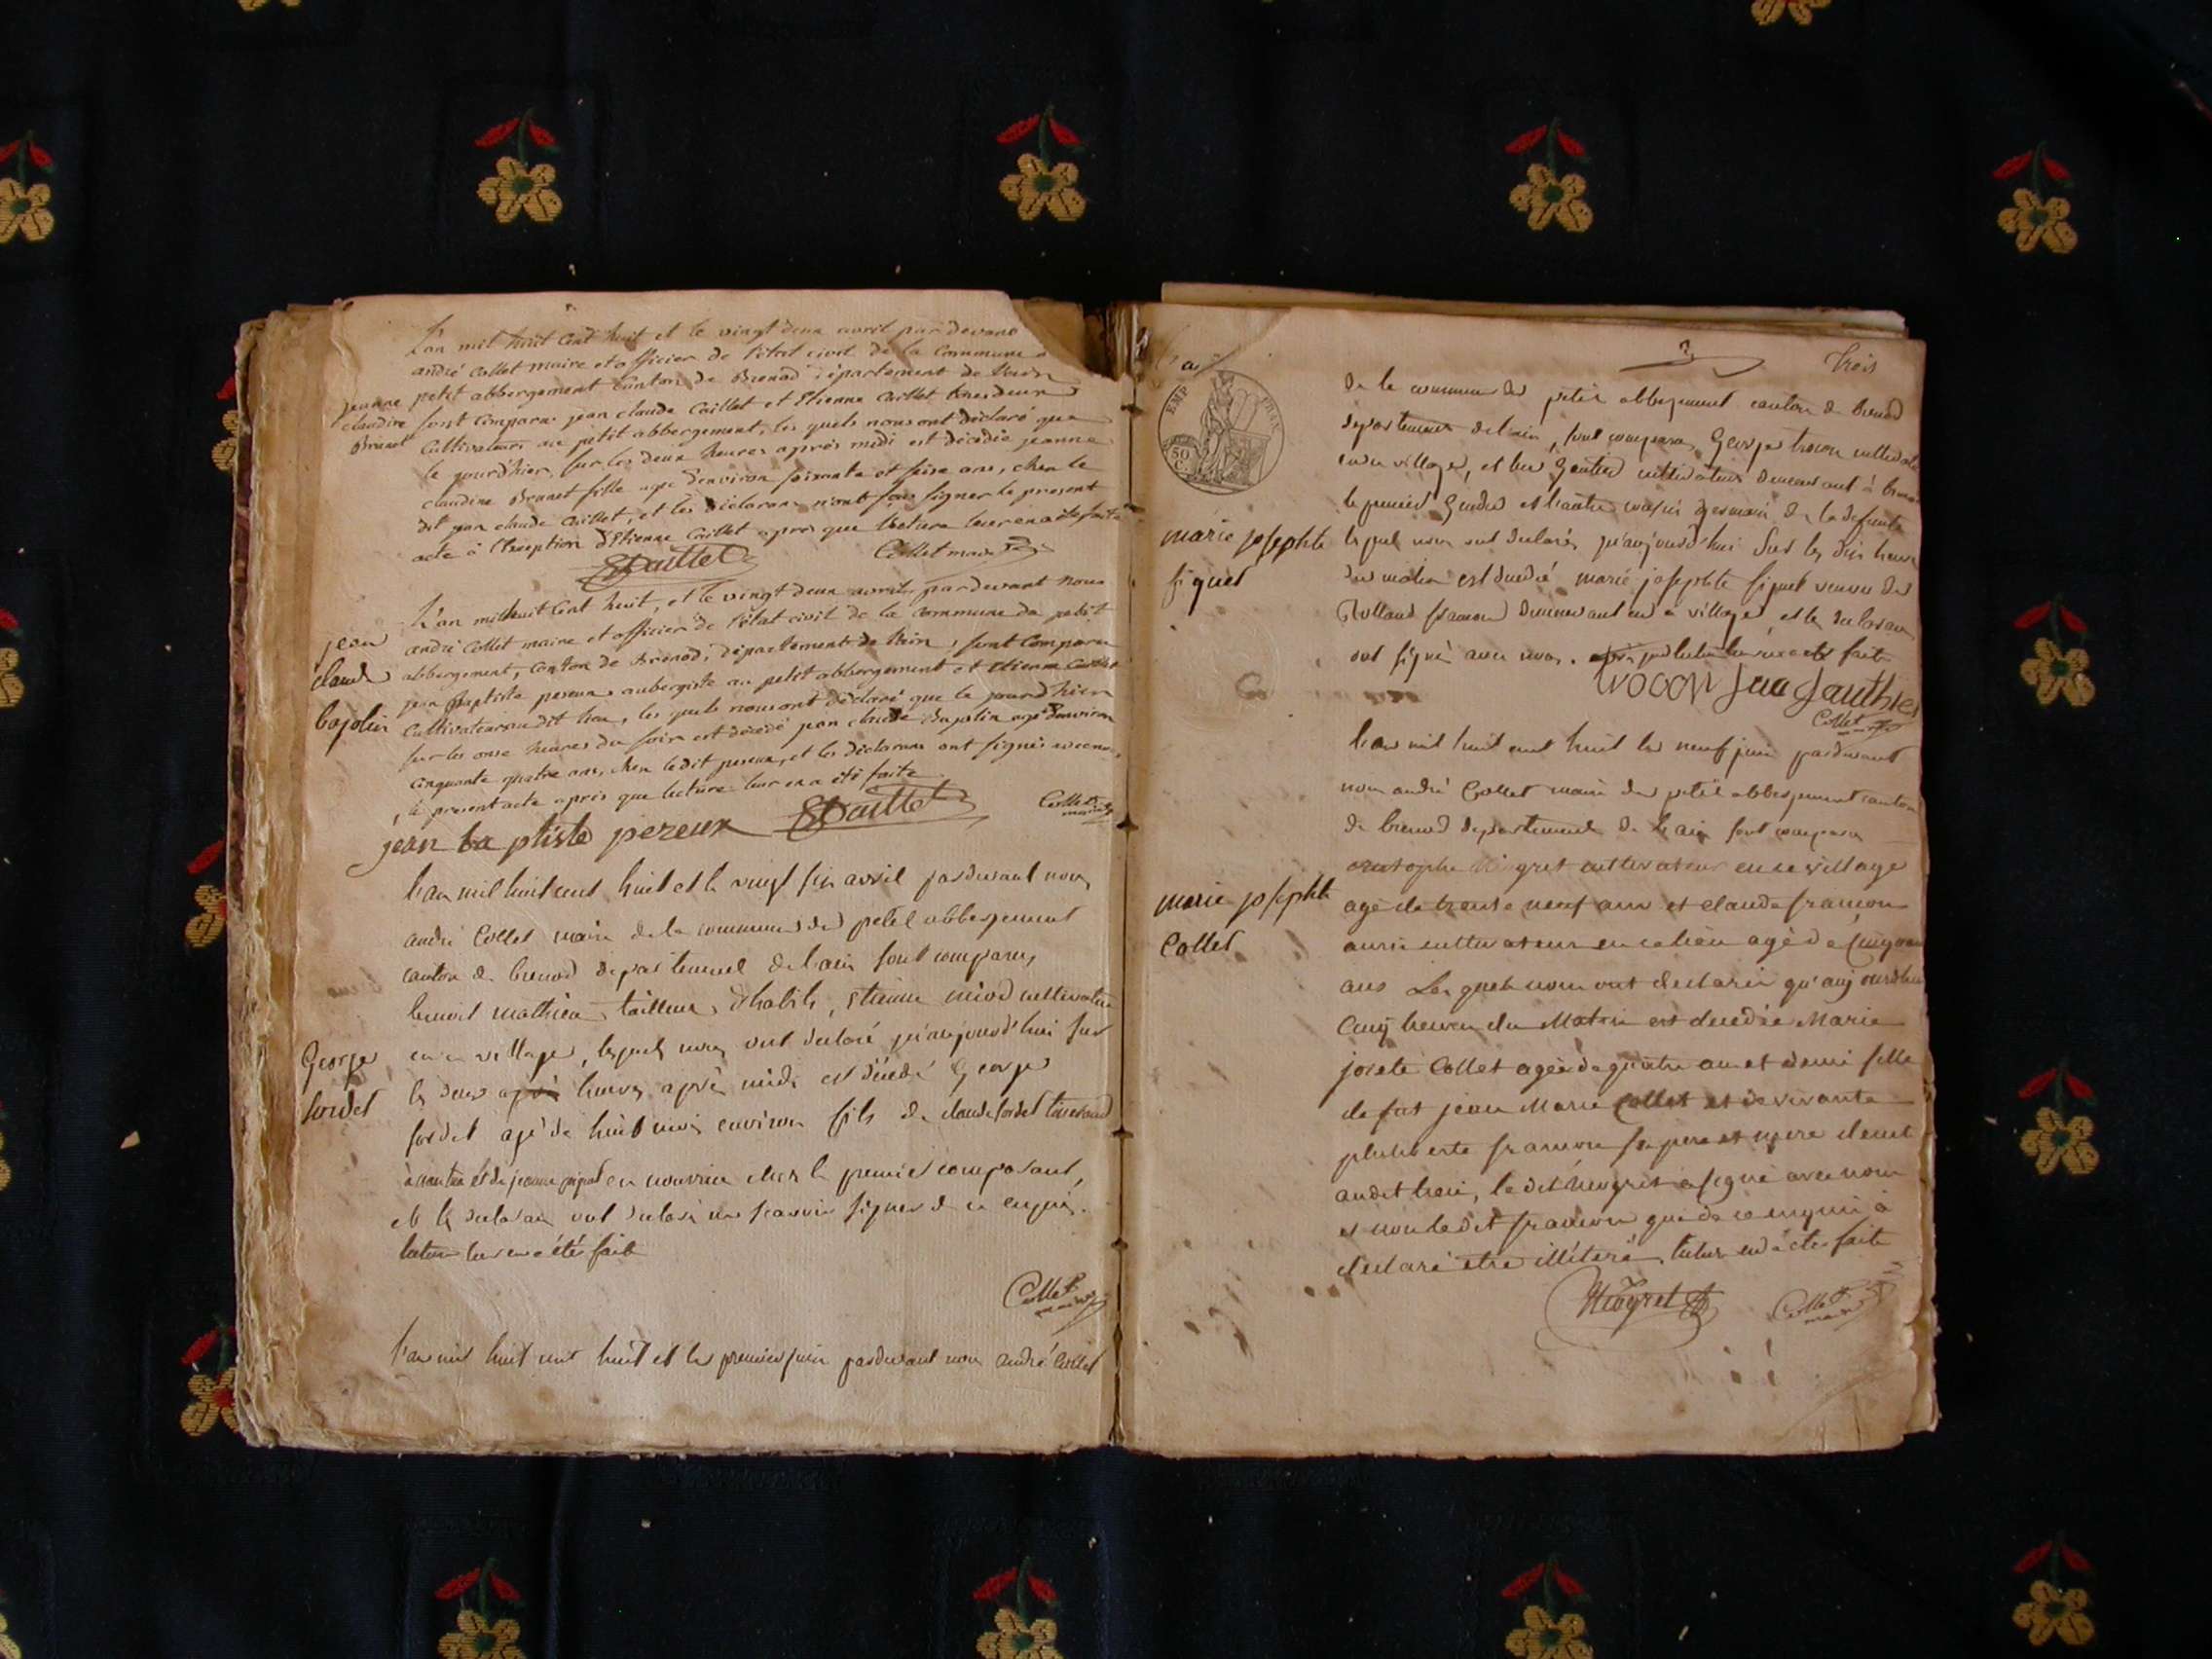 L'an mil huit Cent huit et le vingt deux avril par devant
andré Collet maire et officier de l'état civil de la Commune
jeanne
petit abbergement Canton de Brenod département de
claudine
sont Comparu jean claude Caillet et Etienne Caillet tous deux
Brunet
Cultivateurs au petit abbergement, les quels nous ont déclaré que
le jourdhier, sur les deux heures après midi est décédée jeanne
claudine Brunet fille agé d'environ soixante et seise ans, chez le
dit jean claude Caillet, et les déclarans n'ont signer le present
acte à l'exception d'Etienne Caillet après que lecture leur en a été faite
Caillet
Collet maire
L'an mil huit Cent huit, et le vingt deux avril, par devant nous
jean
andré Collet maire et officier de l'état civil de la Commune de petit
claude
abbergement, Canton de Brenod, département de , sont Comparu
jean Baptiste pereux aubergiste au petit abbergement et Etienne Caillet
bajolin
Cultivateur au dit lieu, les quels nous ont déclaré que le jourdhier
sur les onse heures du soir est décédé jean claude Bajolin agé d'environ
Cinquante quatre ans, chez le dit pereux, et les déclarans ont signés avec nous
le present acte après que lecture leur en a été faite
jean ba ptiste pezeux
Caillet
Collet maire
l'an mil huit cent huit et le vingt six avril pardevant nous
andré Collet maire de la commune du petit abbergement
canton de brenod departement de lain sont comparus
benoit mathieu tailleur d'habits, etienne niod cultivateur
George
en ce village, lesquels nous ont déclaré qu'aujourd'hui sur
Sordet
les deux après heures après midi est décédé George
sordet agé de huit mois environ fils de claude sordet
à nantua et de jeanne en nourrice chez le premier comparant,
et les declarans ont declaré ne scavoir signer de ce enquis.
lecture leur en a été faite
Collet maire
l'an mil huit cent huit et le premier juin pardevant nous andré Collet
trois
EMP FRAN
50 C
de la commune du petit abbergement canton de brenod
departement de lain, sont comparus George trocon cultivateur
en ce village, et luc Gautier cultivateur demeurant à
le premier Gendre et l'autre cousin germain de la defunte
marie josephte
lesquel nous ont declarés qu'aujourd'hui sur les dix heures
siguet
du matin est décédé marie josephte siguet veuve de
Rolland framon demeurant en ce village, et les declarans
ont signés avec nous. après que lecture leur en a été faite
trocon luc Gauthier
Collet maire
l'an mil huit cent huit le neuf juin pardevant
nous andré Collet maire du petit abbergement canton
de brenod departement de lain sont comparu
cristophe cultivateur en ce village
marie josephte
agé de trente neuf ans et claude framon
Collet
aussi cultivateur en ce lieu agé de
ans Les quels nous ont declaré qu'aujourd'hui
Cinq heures du Matin est decedée Marie
josete Collet agée de quatre an et demi fille
de fut jean Marie Collet et de vivante
philiberte framon ses pere et mere
audit lieu, le dit a signé avec nous
et non le dit framon qui de ce enquis a
declaré etre illétéré, lecture en a été faite
Collet maire